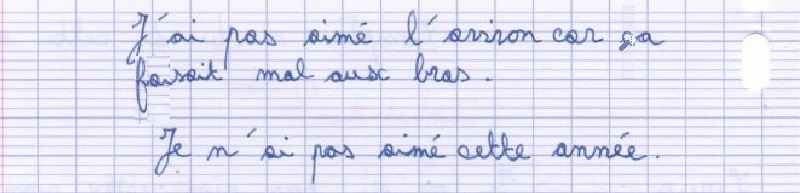 J'ai pas aimé l'aviron car ça
faisait mal aux bras.
Je n'ai pas aimé cette année.